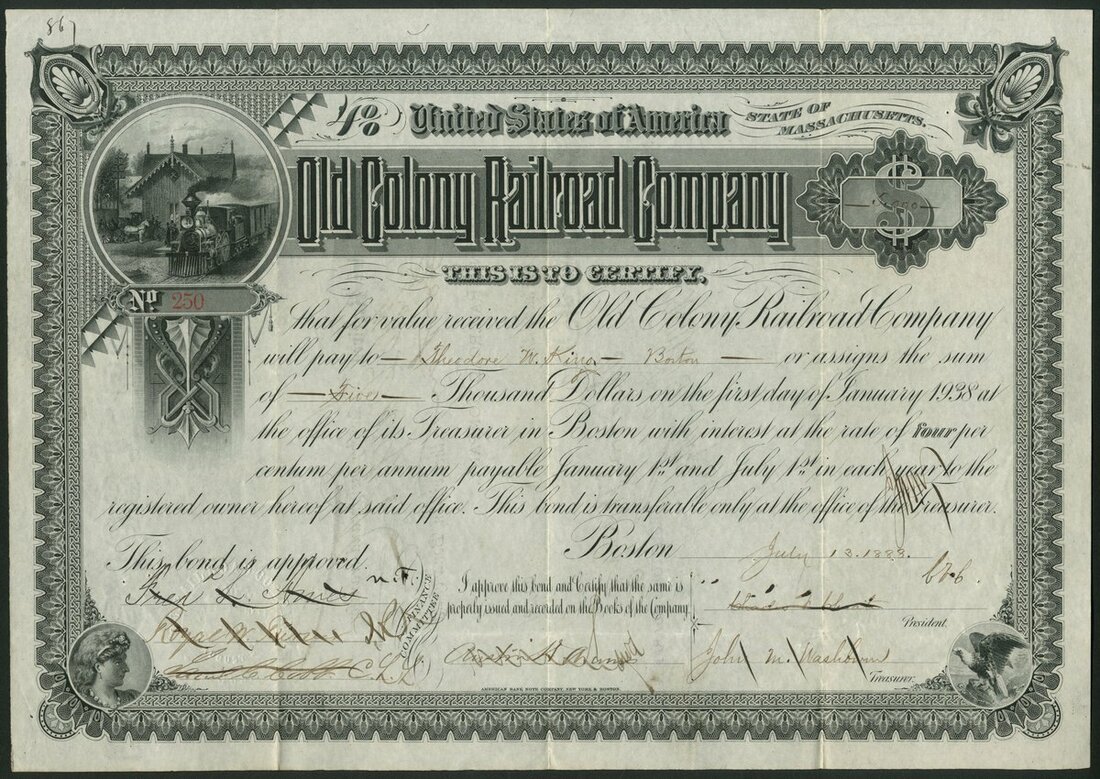 867
4%
United States of America
STATE OF MASSACHUSETTS.
Old Colony Railroad Company
$
5000
THIS IS TO CERTIFY,
No 250
that for value received the Old Colony Railroad Company
will pay to — Theodore W. King — Boston — or assigns the sum
of — Five — Thousand Dollars on the first day of January 1938 at
the office of its Treasurer in Boston with interest at the rate of four per
centum per annum payable January 1st and July 1st in each year to the
registered owner hereof at said office. This bond is transferable only at the office of the Treasurer.
Boston July 13. 1888.
This bond is approved.
Fred L. Ames
FINANCE COMMITTEE
I approve this bond and Certify that the same is
properly issued and recorded on the Books of the Company.
President.
John M. Washburn
Treasurer.
AMERICAN BANK NOTE COMPANY, NEW YORK & BOSTON.